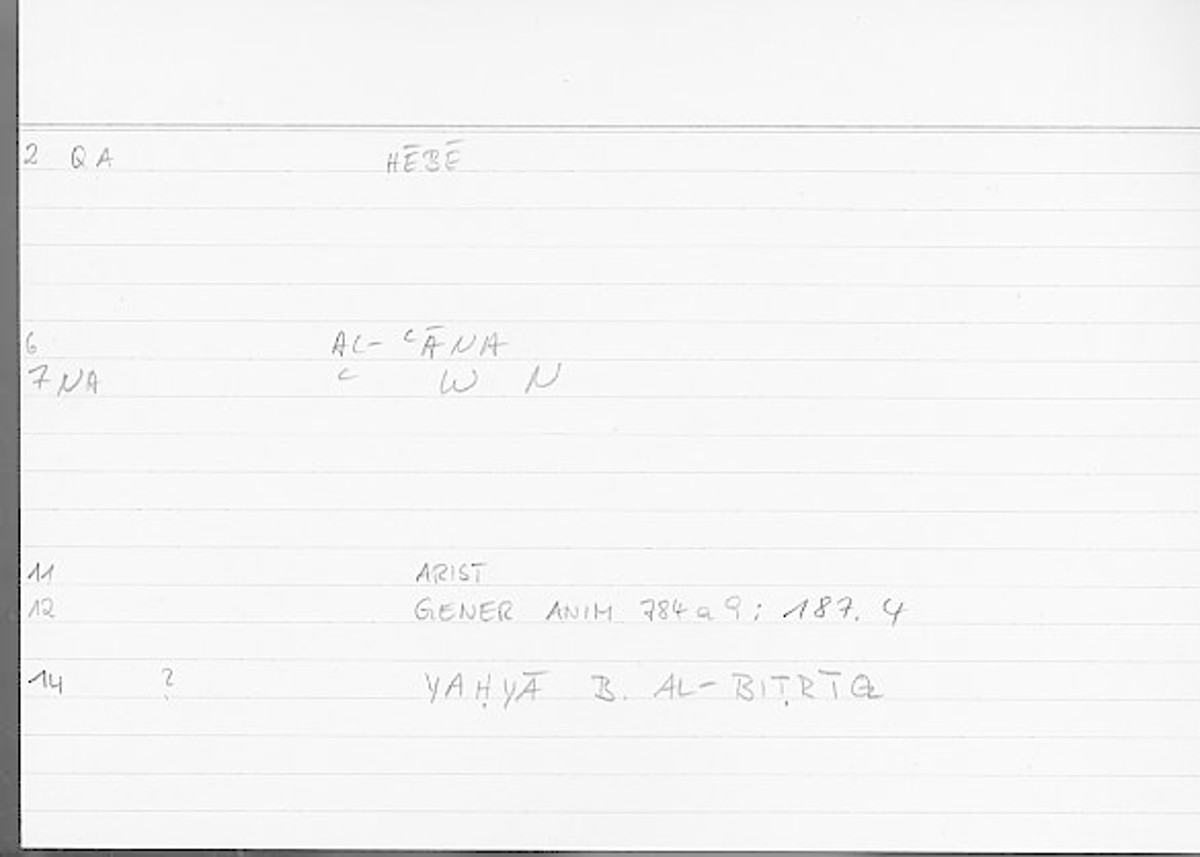 2 QA HĒBĒ
6 AL-ʿĀNA
7 NA ʿ W N
11 ARIST
12 GENER ANIM 784a9; 187.4
14 ? YAḤYĀ B. AL-BIṬRĪQ